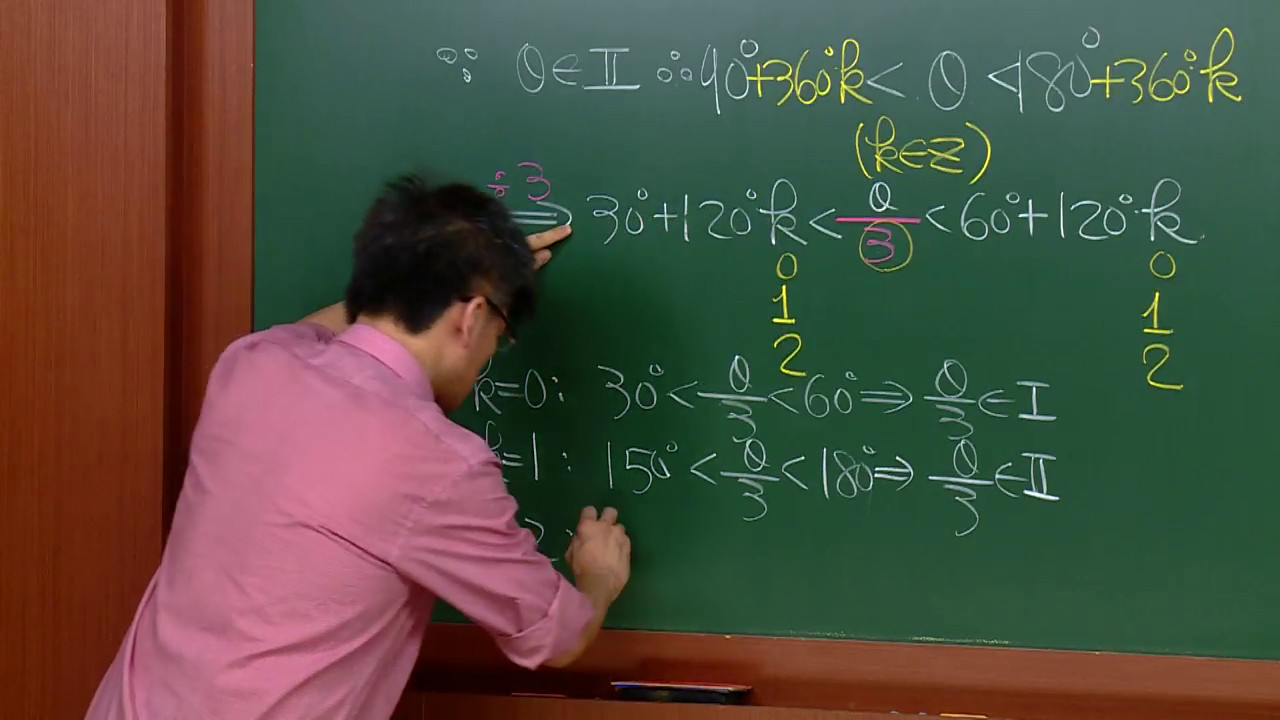 ∵ θ∈Ⅱ ∴ 90°+360°k < θ < 180°+360°k
(k∈Z)
÷3
⇒ 30°+120°k < θ/3 < 60°+120°k
0 0
1 1
2 2
k=0: 30° < θ/3 < 60° ⇒ θ/3 ∈ Ⅰ
k=1: 150° < θ/3 < 180° ⇒ θ/3 ∈ Ⅱ
2: